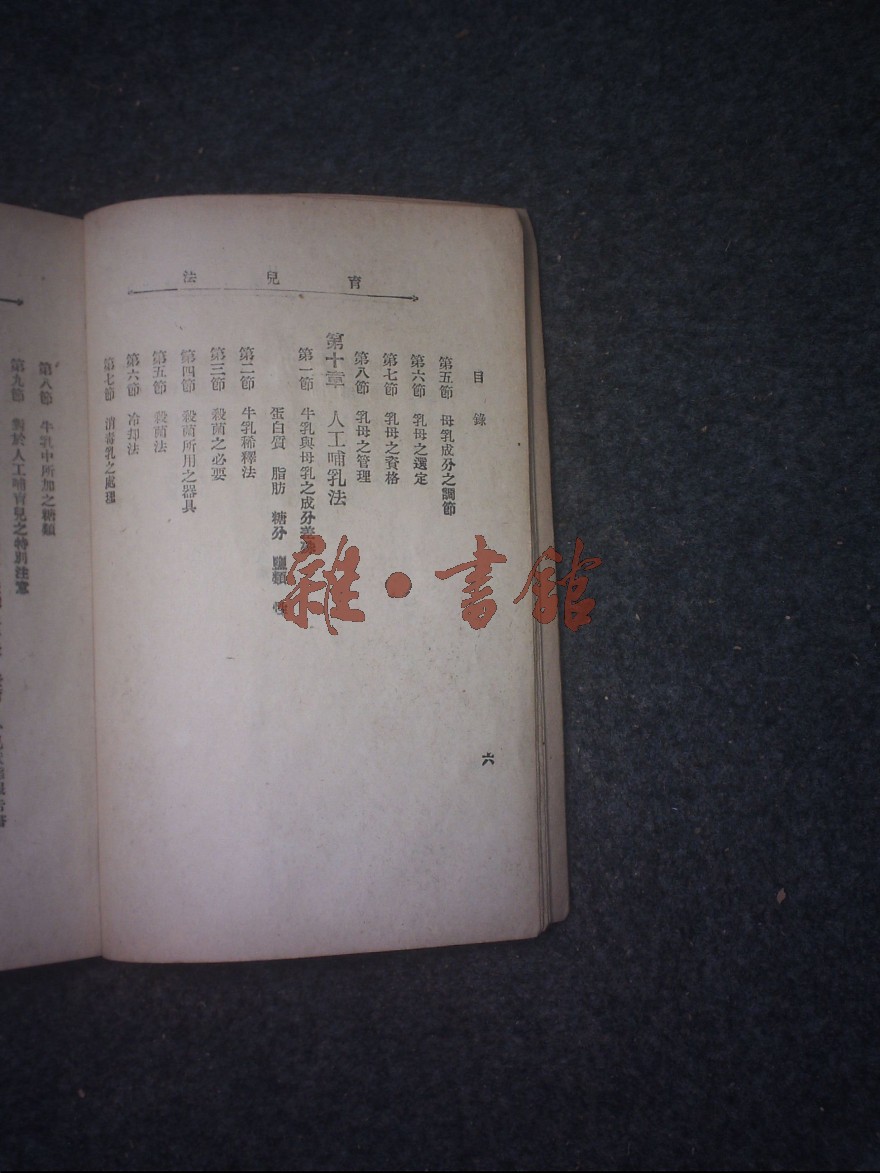 育兒法
目錄
第五節 母乳成分之調節
第六節 乳母之選定
第七節 乳母之資格
第八節 乳母之管理
第十章 人工哺乳法
第一節 牛乳與母乳之成分
蛋白質 脂肪 糖分 鹽類
第二節 牛乳稀釋法
第三節 殺菌之必要
第四節 殺菌所用之器具
第五節 殺菌法
第六節 冷却法
第七節 消毒乳之處理
六
第八節 牛乳中所加之糖類
第九節 對於人工哺育兒之特別注意
雜·書館